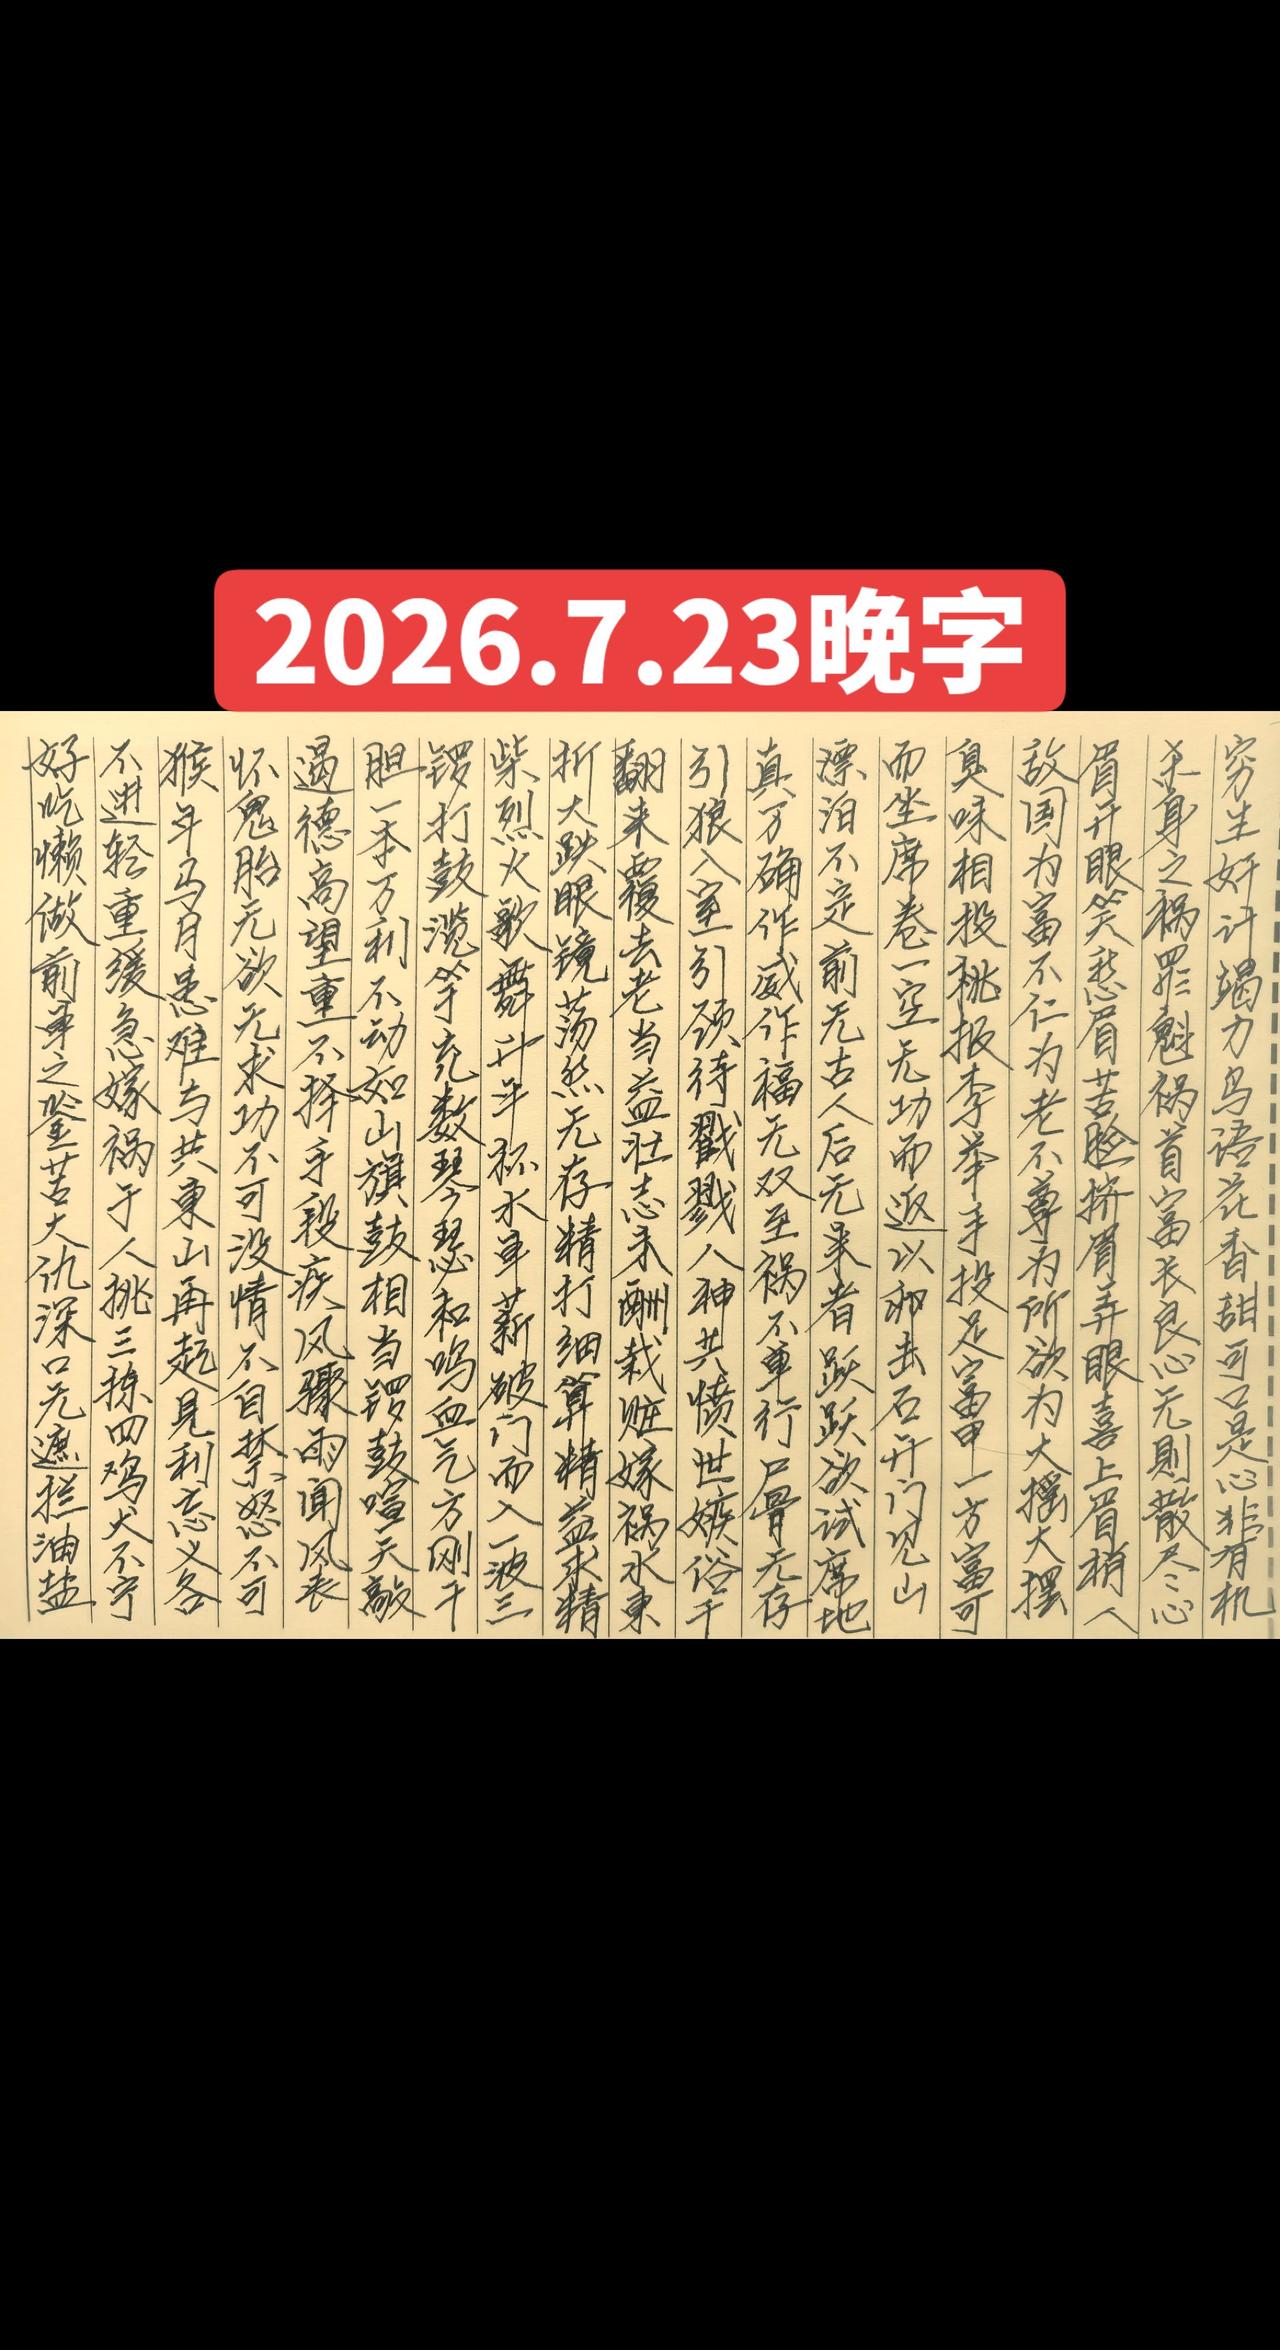 2026.7.23晚字
穷生奸计竭力鸟语花香甜可口是心非有机
杀身之祸罪魁祸首富衣良心无则散尽心
眉开眼笑愁眉苦脸挤眉弄眼喜上眉梢人
敌国为富不仁为老不尊为所欲为大摇大摆
臭味相投桃报李举手投足富甲一方富可
而坐席卷一空无功而返以卵击石开门见山
漂泊不定前无古人后无来者跃跃欲试席地
真万确作威作福无双至祸不单行尸骨无存
引狼入室引颈待戳戮人神共愤世嫉俗千
翻来覆去老当益壮志未酬栽赃嫁祸水东
折大跌眼镜荡然无存精打细算精益求精
柴烈火歌舞升平杯水车薪破门而入一波三
锣打鼓滥竽充数琴瑟和鸣血气方刚干
胆一本万利不动如山旗鼓相当锣鼓喧天敲
遏德高望重不择手段疾风骤雨闻风丧
怀鬼胎无欲无求功不可没情不自禁怒不可
猴年马月患难与共东山再起见利忘义各
不进轻重缓急嫁祸于人挑三拣四鸡犬不宁
好吃懒做前车之鉴苦大仇深口无遮拦油盐